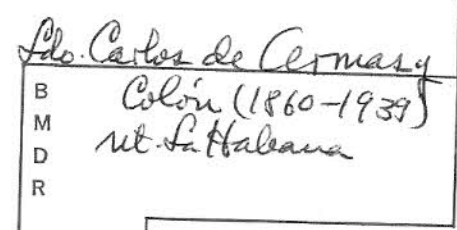 Ldo. Carlos de Cermas y
Colón (1860-1939)
nt. La Habana
B
M
D
R